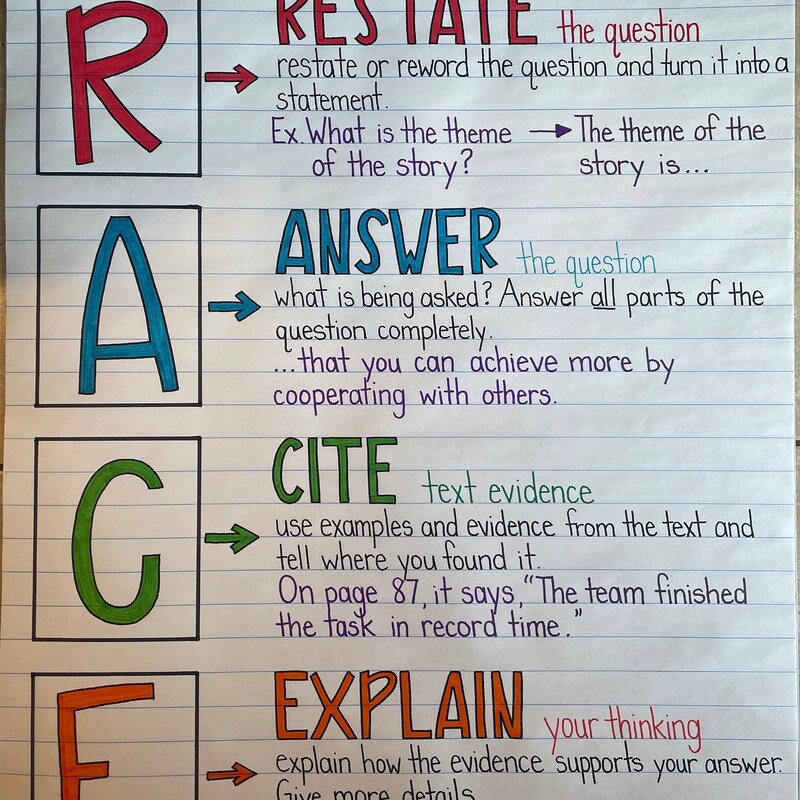 R
RESTATE the question
restate or reword the question and turn it into a
statement.
Ex. What is the theme → The theme of the
of the story? story is...
A
ANSWER the question
what is being asked? Answer all parts of the
question completely.
...that you can achieve more by
cooperating with others.
C
CITE text evidence
use examples and evidence from the text and
tell where you found it.
On page 87, it says, "The team finished
the task in record time."
E
EXPLAIN your thinking
explain how the evidence supports your answer.
Give more details